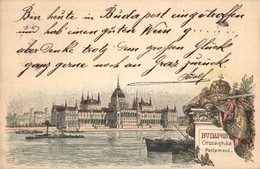 Bin heute in Budapest eingetroffen
und hab einen guten Wein g...
aber denke trotz dem großen Glück
ganz gerne noch an Graz zurück
BUDAPEST
Országház
Parlement.